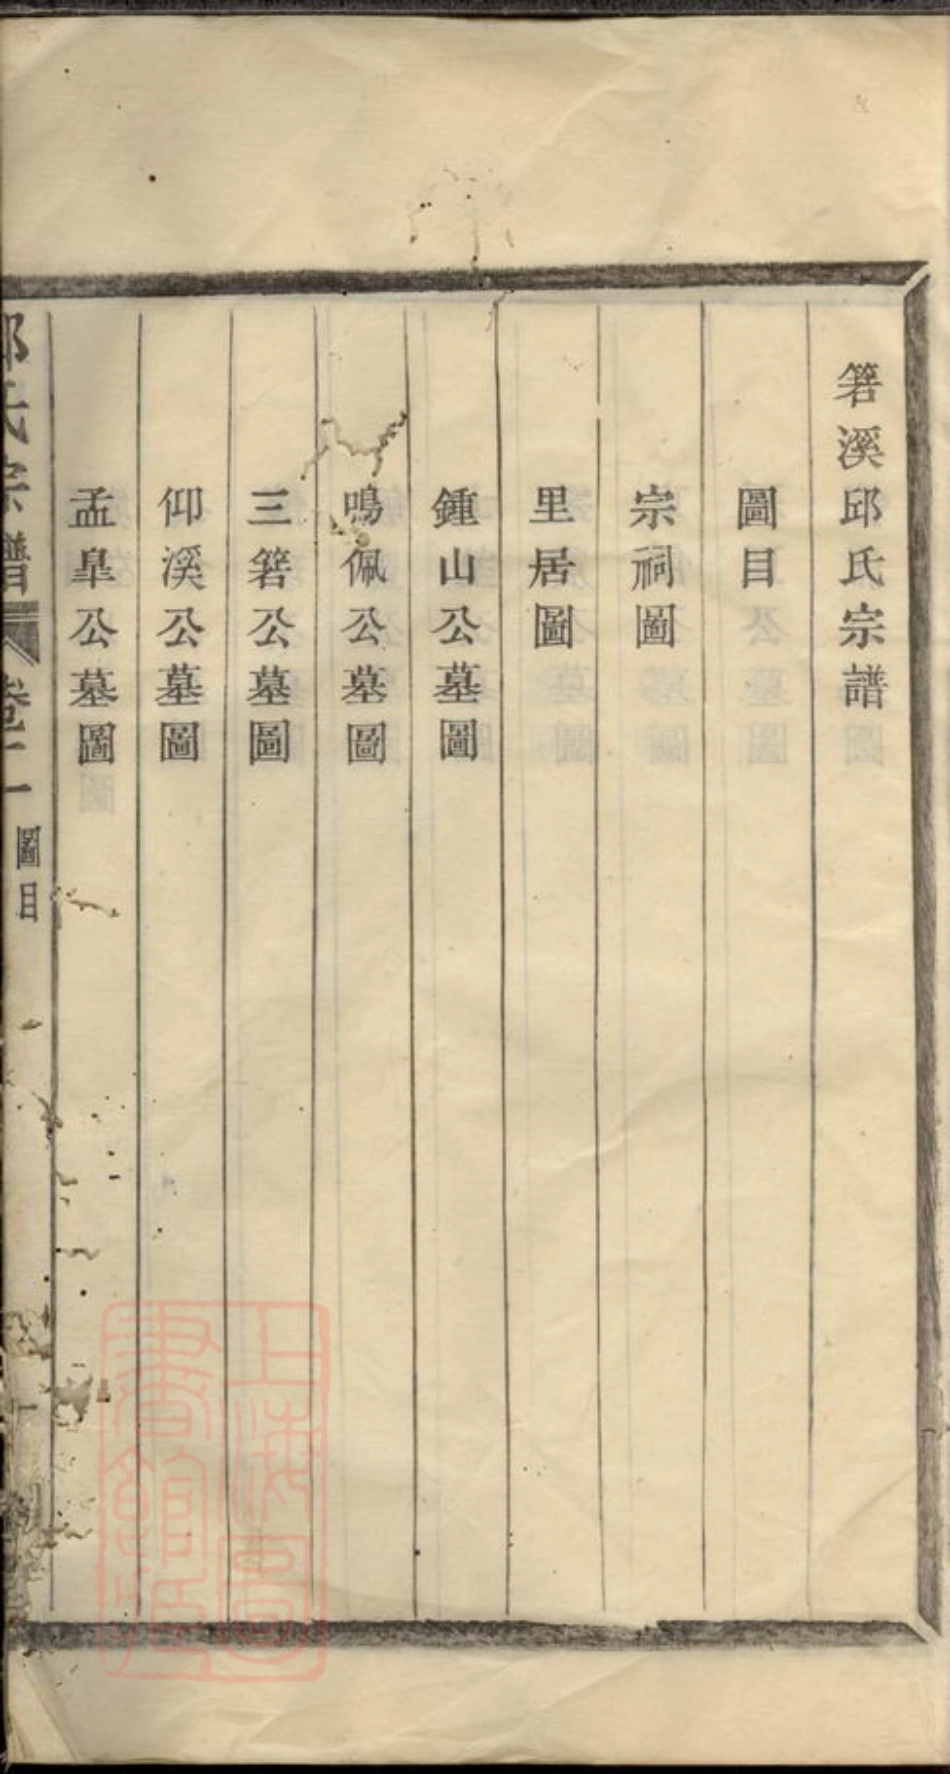 箬溪邱氏宗譜
圖目
宗祠圖
里居圖
鍾山公墓圖
鳴佩公墓圖
三箬公墓圖
仰溪公墓圖
孟臯公墓圖
邱氏宗譜
圖目
上海圖
書館藏